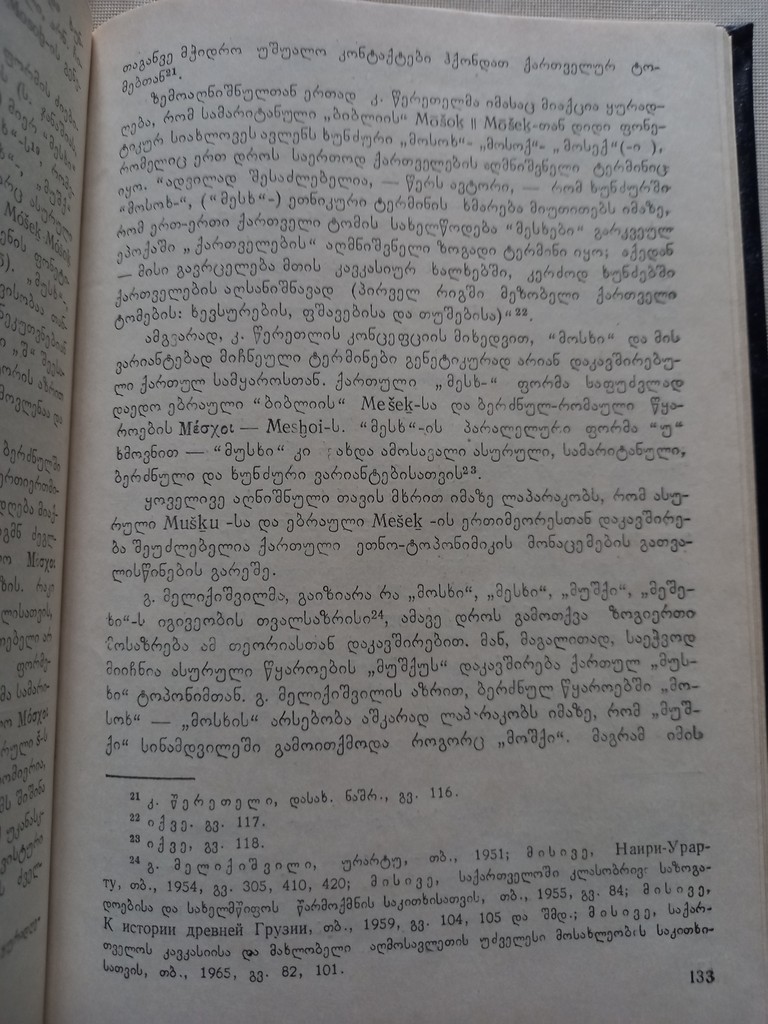 თაგანვე მჭიდრო უშუალო კონტაქტები ჰქონდათ ქართველურ ტო-
მებთან²¹.
ზემოაღნიშნულთან ერთად კ. წერეთელმა იმასაც მიაქცია ყურად-
ღება, რომ სამარიტანული „ბიბლიის“ Mōšok || Mōšek-თან დიდი ფონე-
ტიკურ სიახლოვეს ავლენს ხუნძური „მოსოხ“- „მოსოქ“- „მოსექ“(-ი ),
რომელიც ერთ დროს საერთოდ ქართველების აღმნიშვნელი ტერმინიც
იყო. “ადვილად შესაძლებელია, — წერს ავტორი, — რომ ხუნძურში
“მოსოხ-“, (“მესხ“-) ეთნიკური ტერმინის ხმარება მიუთითებს იმაზე,
რომ ერთ-ერთი ქართველი ტომის სახელწოდება “მესხები“ გარკვეულ
ეპოქაში „ქართველების“ აღმნიშვნელი ზოგადი ტერმინი იყო; აქედან
— მისი გავრცელება მთის კავკასიურ ხალხებში, კერძოდ ხუნძებში
ქართველების აღსანიშნავად (პირველ რიგში მეზობელი ქართველი
ტომების: ხევსურების, ფშავებისა და თუშებისა)“²².
ამგვარად, კ. წერეთლის კონცეფციის მიხედვით, “მოსხი“ და მის
ვარიანტებად მიჩნეული ტერმინები გენეტიკურად არიან დაკავშირებუ-
ლი ქართულ სამყაროსთან. ქართული „მესხ-“ ფორმა საფუძვლად
დაედო ებრაული “ბიბლიის“ Mešek-სა და ბერძნულ-რომაული წყა-
როების Μέσχοι — Meshoi-ს. “მესხ“-ის პარალელური ფორმა “უ“
ხმოვნით — “მუსხი“ კი ახდა ამოსავალი ასურული, სამარიტანული,
ბერძნული და ხუნძური ვარიანტებისათვის²³.
ყოველივე აღნიშნული თავის მხრით იმაზე ლაპარაკობს, რომ ასუ-
რული Mušku -სა და ებრაული Mešek -ის ერთიმეორესთან დაკავშირე-
ბა შეუძლებელია ქართული ეთნო-ტოპონიმიკის მონაცემების გათვა-
ლისწინების გარეშე.
გ. მელიქიშვილმა, გაიზიარა რა „მოსხი“, „მესხი“, „მუშქი“, „მეშე-
ხი“-ს იგივეობის თვალსაზრისი²⁴, ამავე დროს გამოთქვა ზოგიერთი
მოსაზრება ამ თეორიასთან დაკავშირებით. მან, მაგალითად, საეჭვოდ
მიიჩნია ასურული წყაროების „მუშქუს“ დაკავშირება ქართულ „მუს-
ხი“ ტოპონიმთან. გ. მელიქიშვილის აზრით, ბერძნულ წყაროებში „მო-
სოხ“ — „მოსხის“ არსებობა აშკარად ლაპ·რაკობს იმაზე, რომ „მუშ-
ქი“ სინამდვილეში გამოითქმოდა როგორც „მოშქი“. მაგრამ იმის
²¹ კ. წერეთელი, დასახ. ნაშრ., გვ. 116.
²² იქვე. გვ. 117.
²³ იქვე, გვ. 118.
²⁴ გ. მელიქიშვილი, ურარტუ, თბ., 1951; მისივე, Наири-Урар-
ту, თბ., 1954, გვ. 305, 410, 420; მისივე, საქართველოში კლასობრივ საზოგა-
დოებისა და სახელმწიფოს წარმოქმნის საკითხისათვის, თბ., 1955, გვ. 84; მისივე,
К истории древней Грузии, თბ., 1959, გვ. 104, 105 და შმდ.; მისივე, საქარ-
თველოს კავკასიისა და მახლობელი აღმოსავლეთის უძველესი მოსახლეობის საკითხი-
სათვის, თბ., 1965, გვ. 82, 101.
133